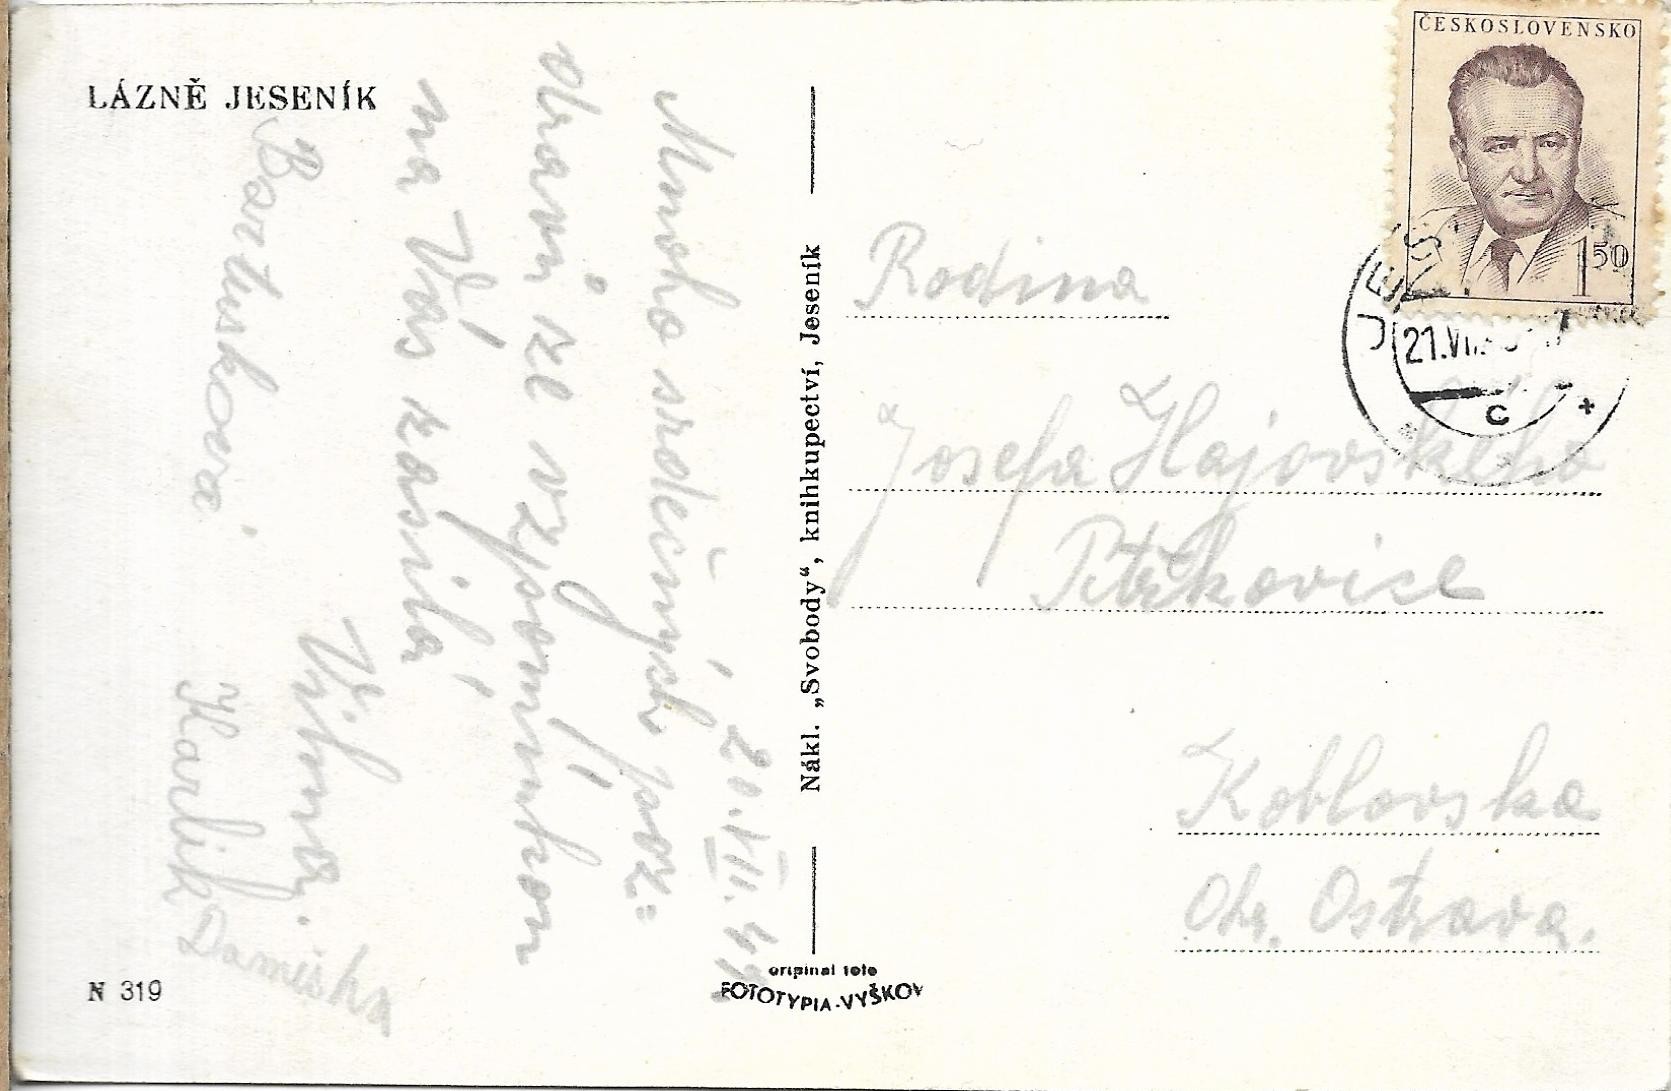 LÁZNĚ JESENÍK
20. VII. 49.
Mnoho srdečných poz=
dravů ze vzpomínkou
na Vás zasílá
Vilma
Bartuskova
Karlik
Damiška
N 319
Nákl. „Svobody“, knihkupectví, Jeseník
original foto
FOTOTYPIA-VYŠKOV
ČESKOSLOVENSKO
1 50
21.VII
c
Rodina
Josefa Hajovského
Petřkovice
Koblovska
Okr. Ostrava.